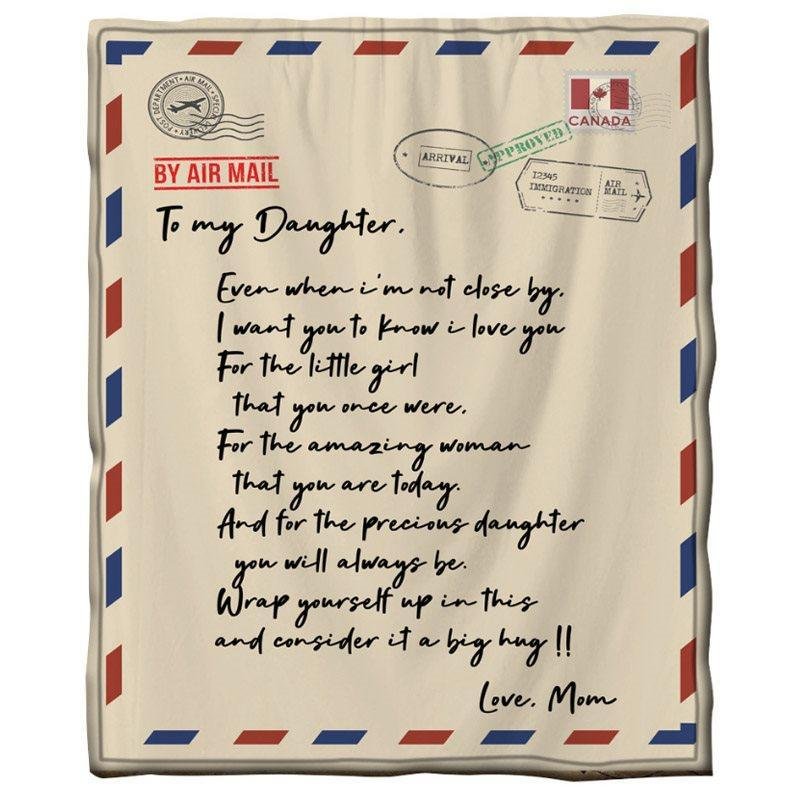 POST DEPARTMENT • AIR MAIL • SPECIAL DELIVERY •
CANADA
ARRIVAL
APPROVED
BY AIR MAIL
12345
IMMIGRATION
AIR
MAIL
To my Daughter,
Even when i'm not close by,
I want you to know i love you
For the little girl
that you once were,
For the amazing woman
that you are today.
And for the precious daughter
you will always be.
Wrap yourself up in this
and consider it a big hug !!
Love, Mom